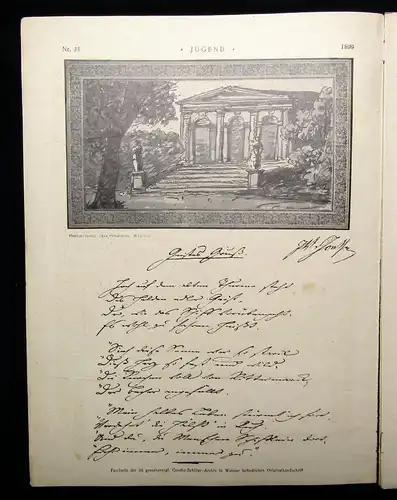 Nr. 35 • JUGEND • 1899
Geistes Gruß.
JWvGoethe
Hoch auf dem alten Thurme steht
Des Helden edler Geist,
Der, wie das Schiff vorübergeht,
Es wohl zu fahren heißt.
"Sieh diese Senne war so stark
"Dieß Herz so fest und wild,
"Die Knochen voll von Rittermark,
"Der Becher angefüllt.
"Mein halbes Leben stürmt ich fort,
"Verdehnt die Hälft in Ruh,
"Und du, du Menschen Schifflein dort,
"Fahr immer, immer zu!"
Facsimile der im grossherzogl. Goethe-Schiller-Archiv in Weimar befindlichen Originalhandschrift